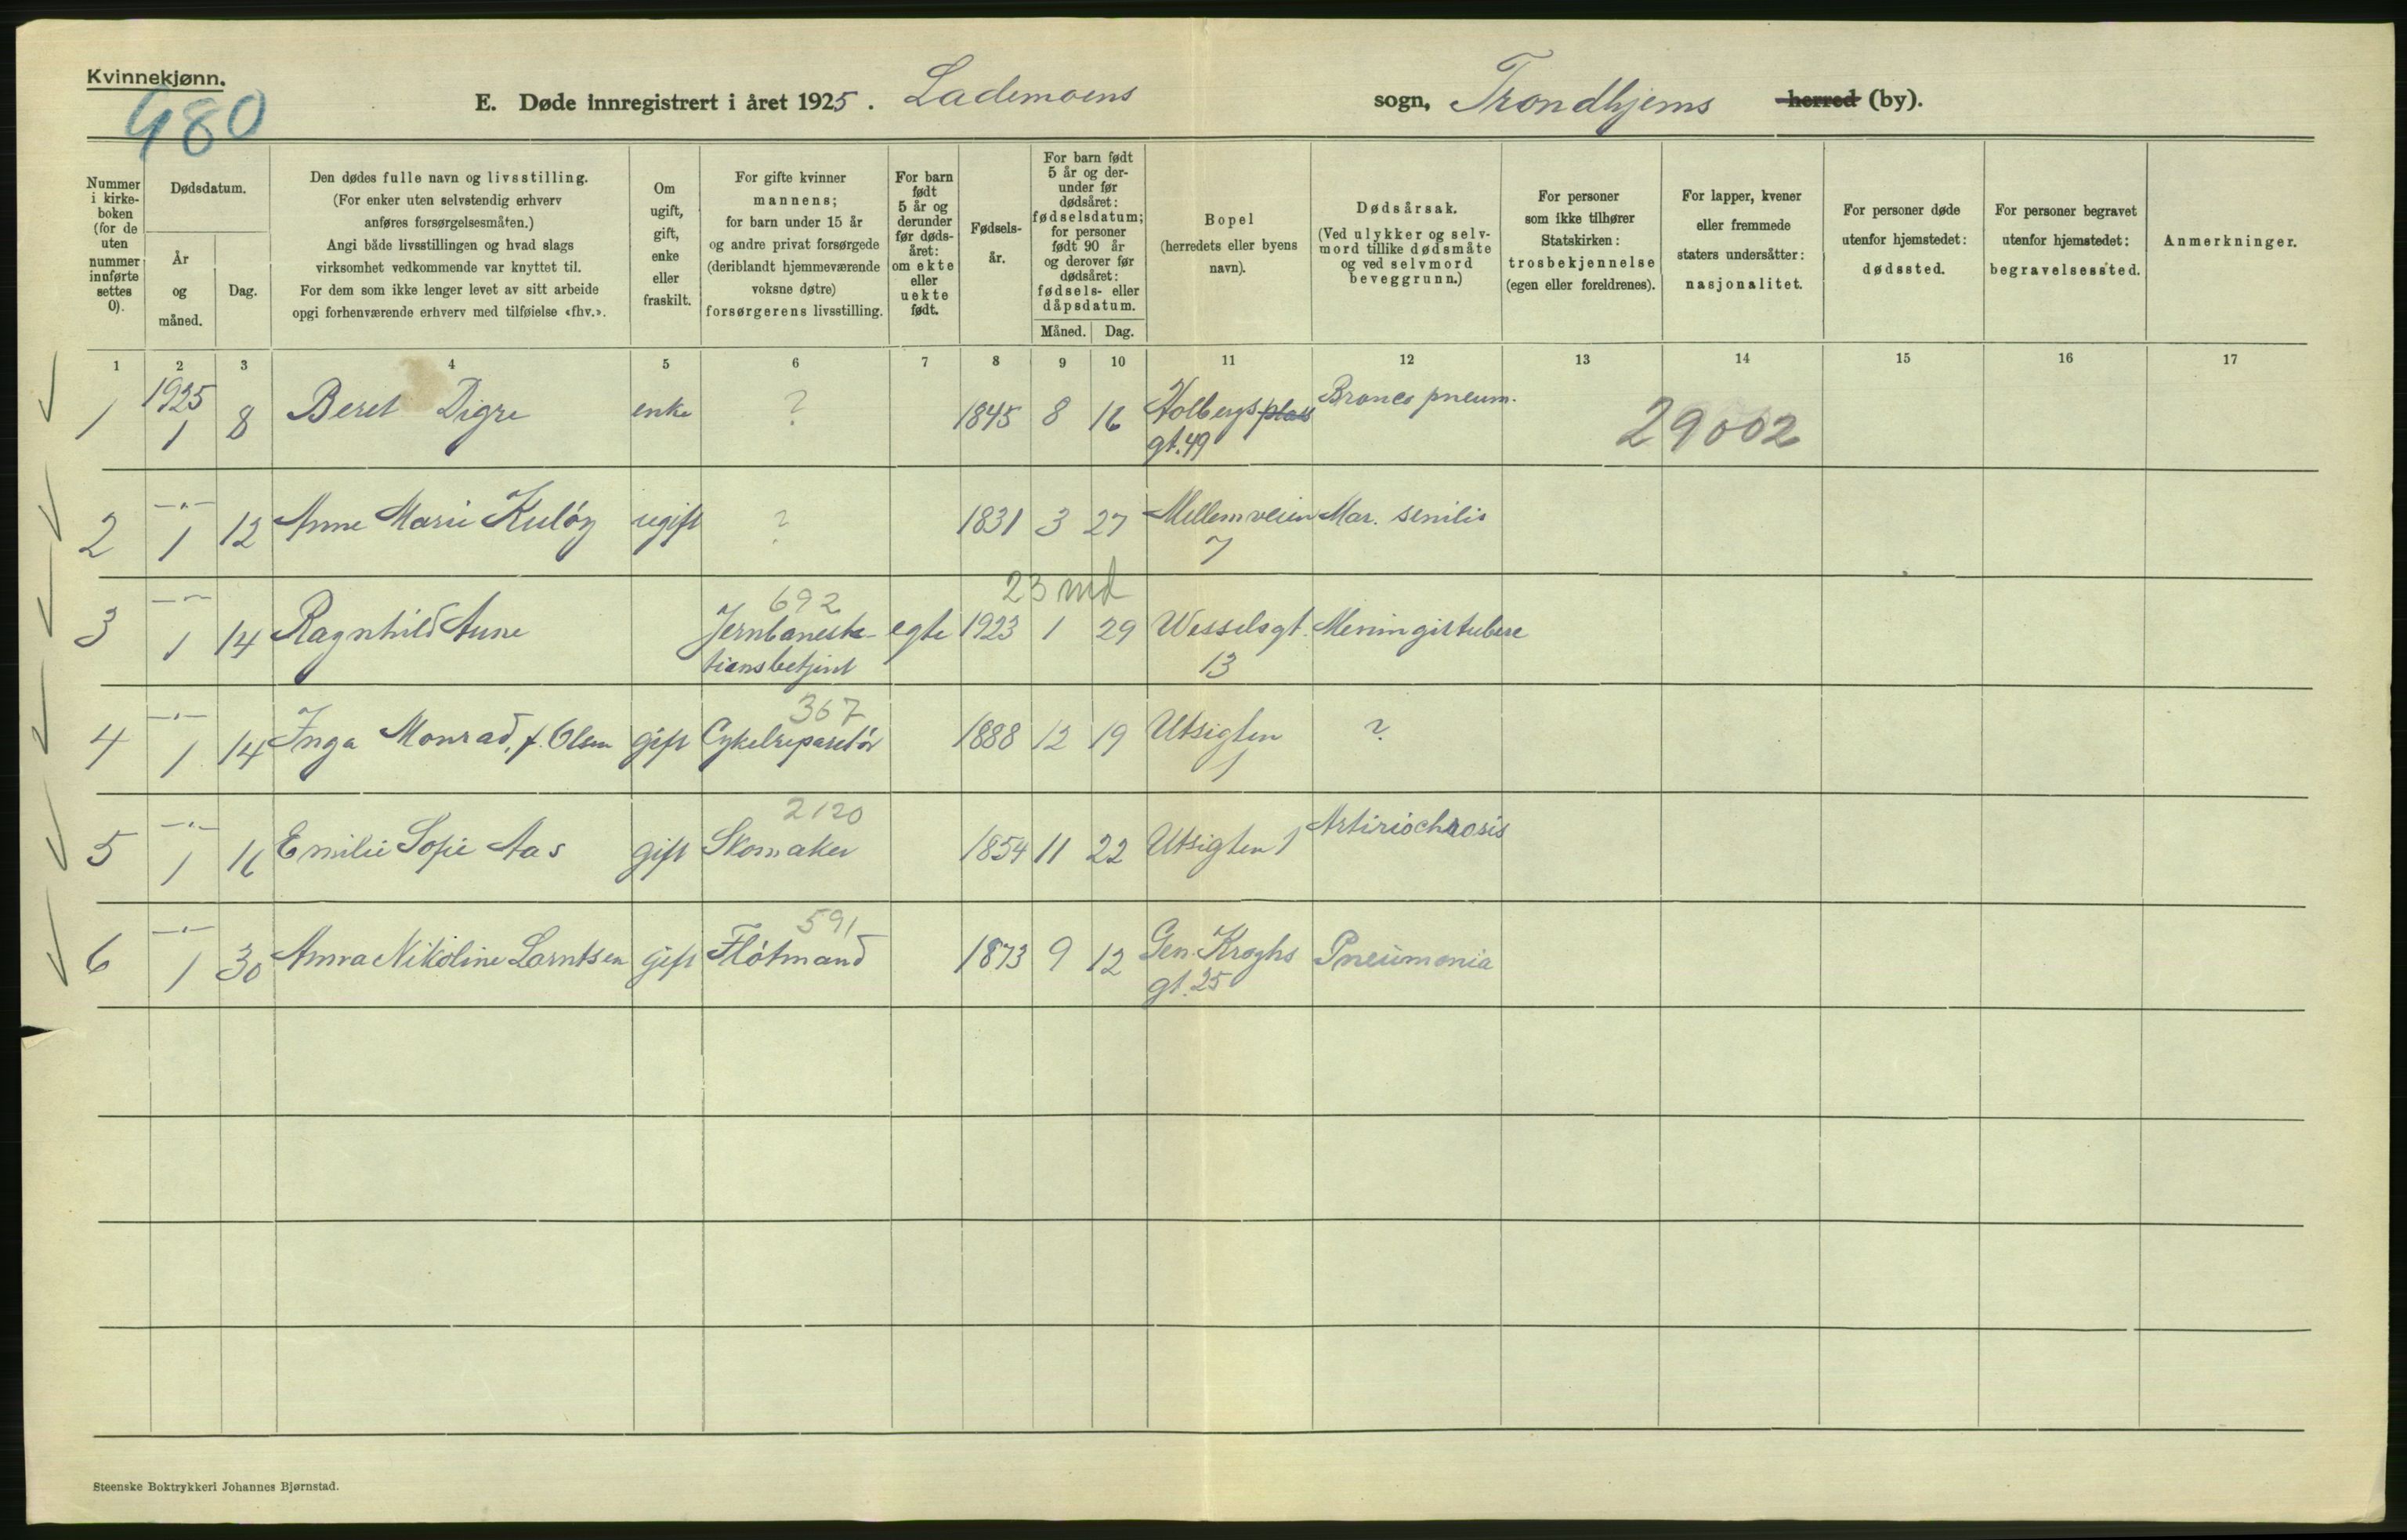 Kvinnekjønn.
480
E. Døde innregistrert i året 1925. Lademoens sogn, Trondhjems herred (by).
Nummer i kirkeboken (for de uten nummer innførte settes 0).
Dødsdatum.
År og måned.
Dag.
Den dødes fulle navn og livsstilling.
(For enker uten selvstendig erhverv
anføres forsørgelsesmåten.)
Angi både livsstillingen og hvad slags
virksomhet vedkommende var knyttet til.
For dem som ikke lenger levet av sitt arbeide
opgi forhenværende erhverv med tilføielse «fhv.».
Om ugift, gift, enke eller fraskilt.
For gifte kvinner
mannens;
for barn under 15 år
og andre privat forsørgede
(deriblandt hjemmeværende
voksne døtre)
forsørgerens livsstilling.
For barn født 5 år og derunder før dødsåret: om ekte eller uekte født.
Fødselsår.
For barn født 5 år og derunder før dødsåret: fødselsdatum; for personer født 90 år og derover før dødsåret: fødsels- eller dåpsdatum.
Måned. Dag.
Bopel
(herredets eller byens
navn).
Dødsårsak.
(Ved ulykker og selvmord tillike dødsmåte og ved selvmord beveggrunn.)
For personer
som ikke tilhører
Statskirken:
trosbekjennelse
(egen eller foreldrenes).
For lapper, kvener
eller fremmede
staters undersåtter:
nasjonalitet.
For personer døde
utenfor hjemstedet:
dødssted.
For personer begravet
utenfor hjemstedet:
begravelsessted.
Anmerkninger.
1 2 3 4 5 6 7 8 9 10 11 12 13 14 15 16 17
1 1925 1 8 Beret Digre enke ? 1845 8 16 Holbergs plass gt. 49 Bronco pneum. 29002
2 —"— 1 12 Anne Marie Kuløy ugift ? 1831 3 27 Mellemveien 7 Mar. senilis
23 md
3 —"— 1 14 Ragnhild Aune 692 Jernbanesta- tionsbetjent egte 1923 1 29 Wesselsgt. 13 Meningit tuberc
4 —"— 1 14 Inga Monrad, f. Olsen gift 367 Cykelreparatør 1888 12 19 Utsigten 1 ?
5 —"— 1 16 Emilie Sofie Aas gift 2120 Skomaker 1854 11 22 Utsigten 1 Artiriochrosis
6 —"— 1 30 Anna Nikoline Larntsen gift 591 Fløtmand 1873 9 12 Gen. Kroghs gt. 25 Pneumonia
Steenske Boktrykkeri Johannes Bjørnstad.